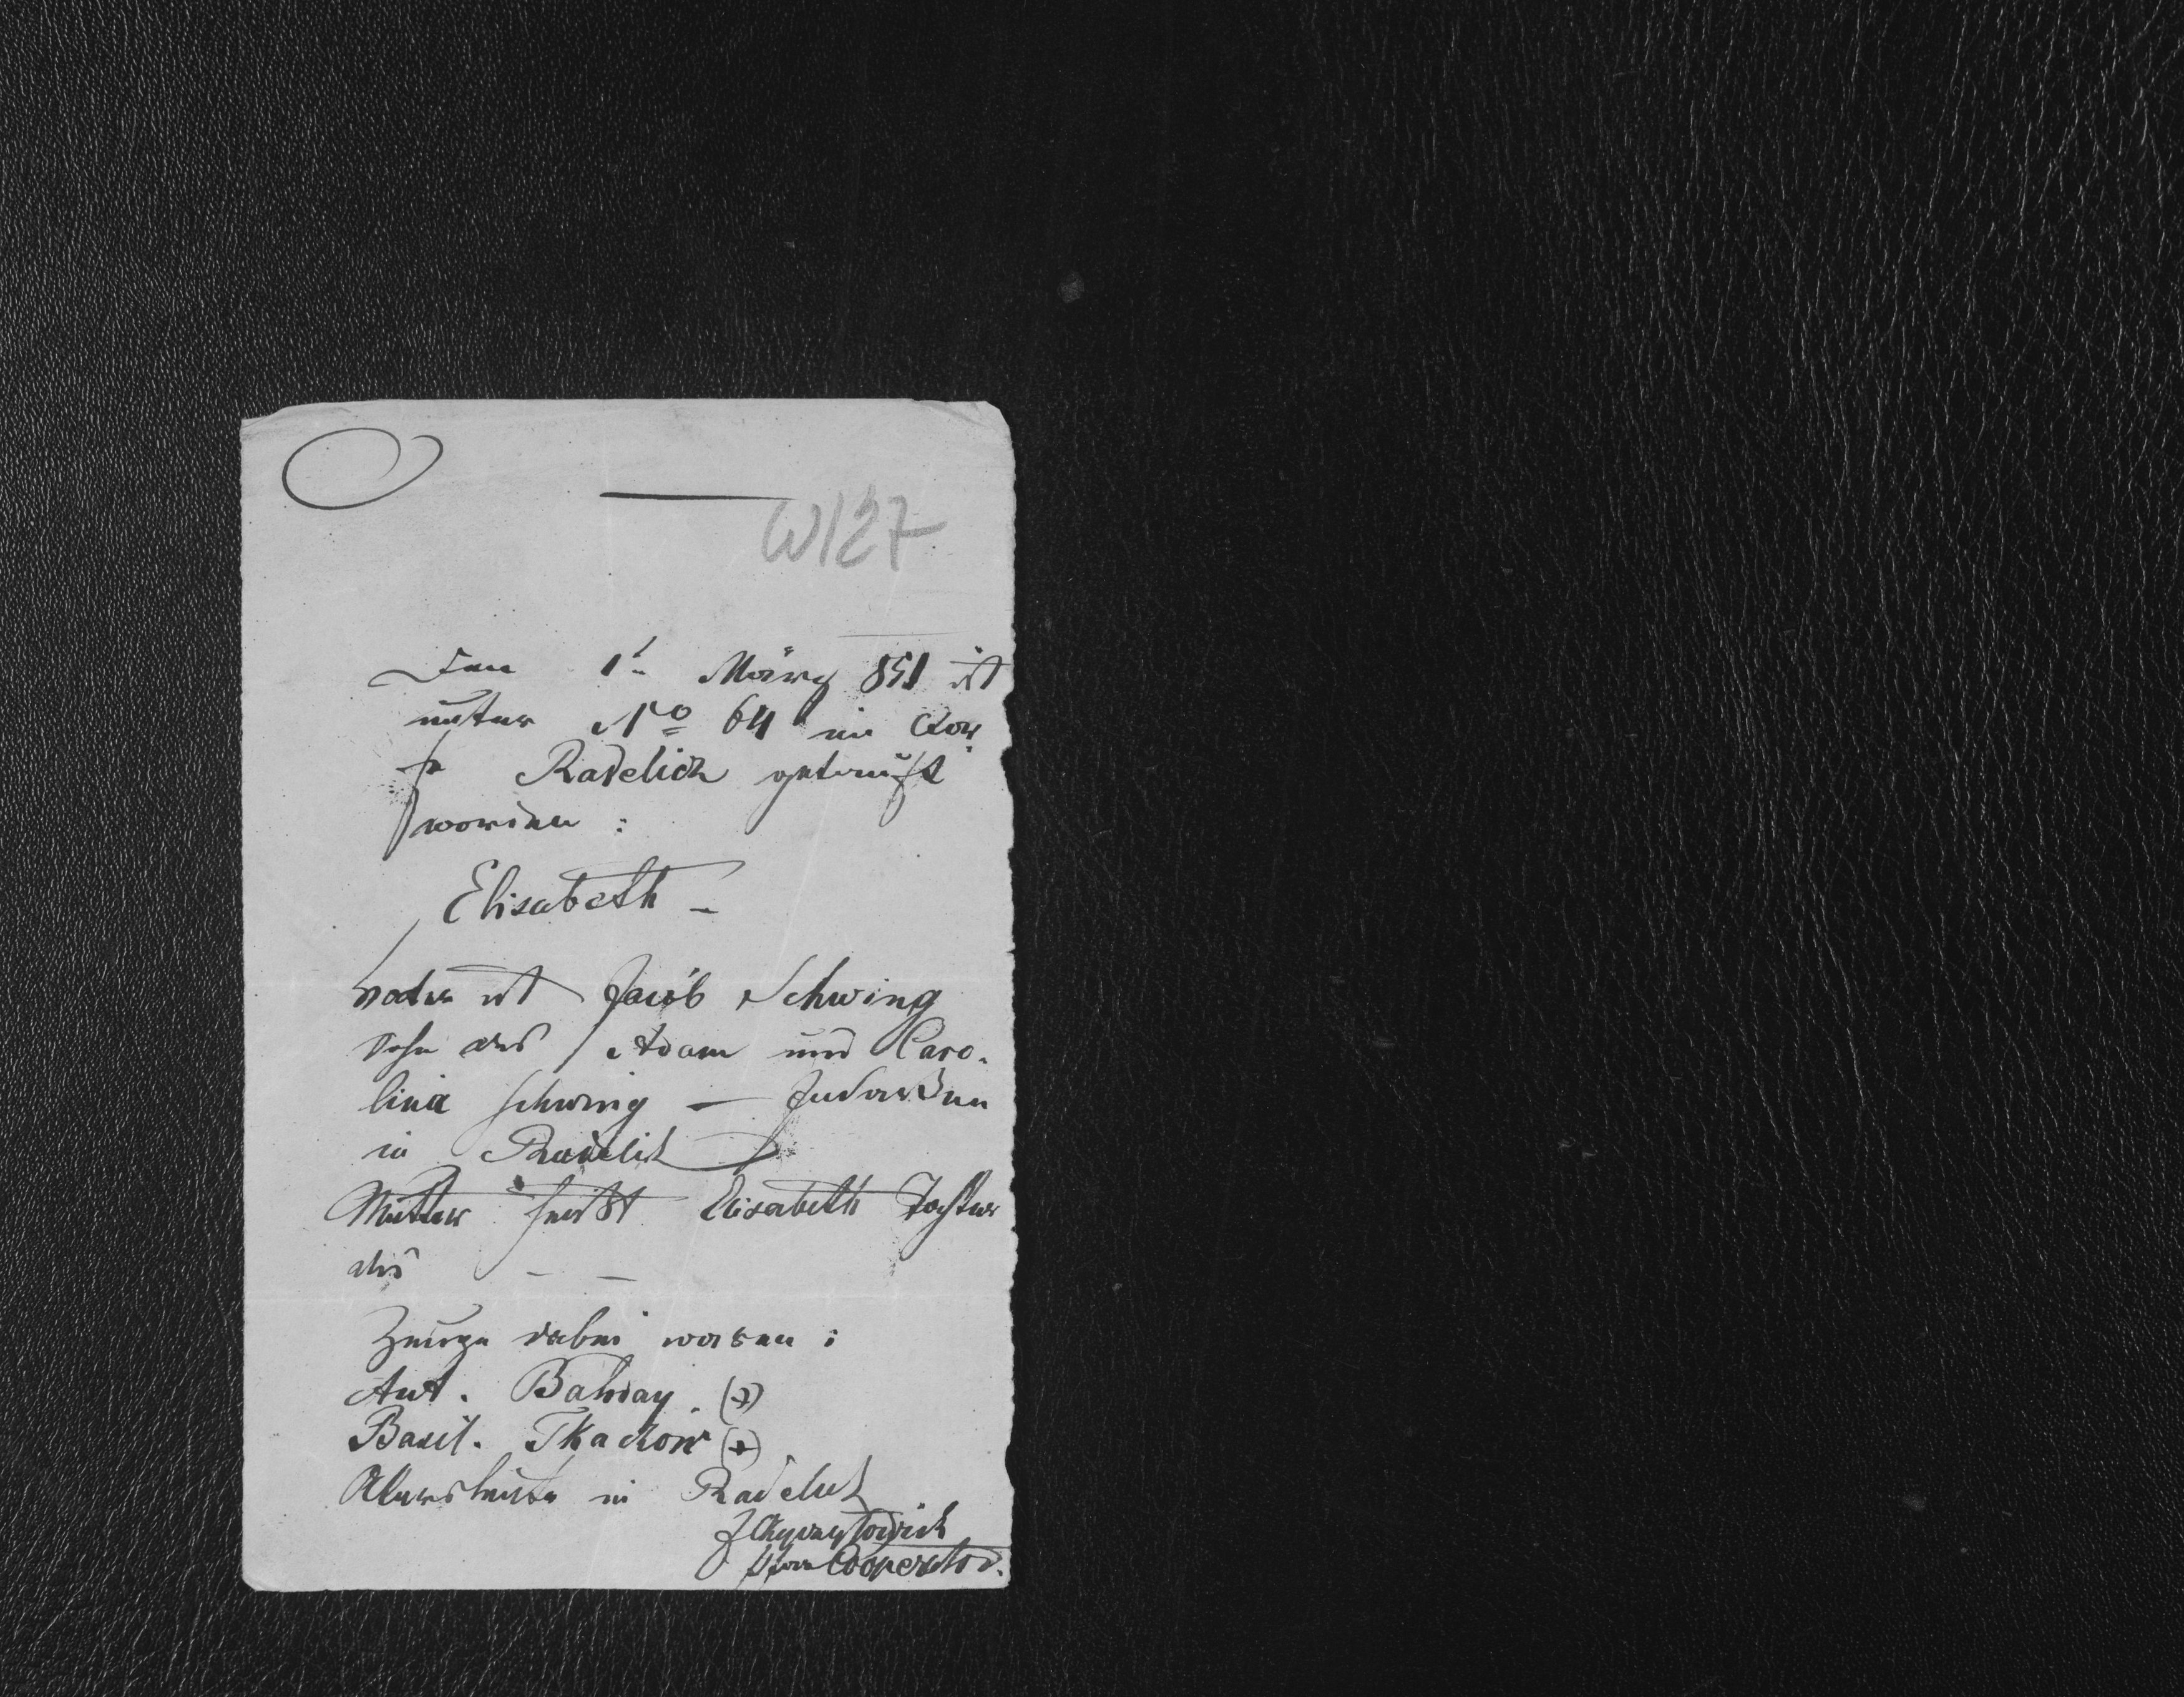 W127
Den 1t. März 851 ist
unter No 64 im Dor
fe Radelich getauft
worden :
Elisabeth –
Vater ist Jacob Schwing
Sohn des Adam und Caro-
lina Schwing – Insassen
in Radelich
Mutter heißt Elisabeth Tochter
des – –
Zeuge dabei waren :
Ant. Bahday (+)
Basil. Tkaczów (+)
in Radelich
Cooperator.